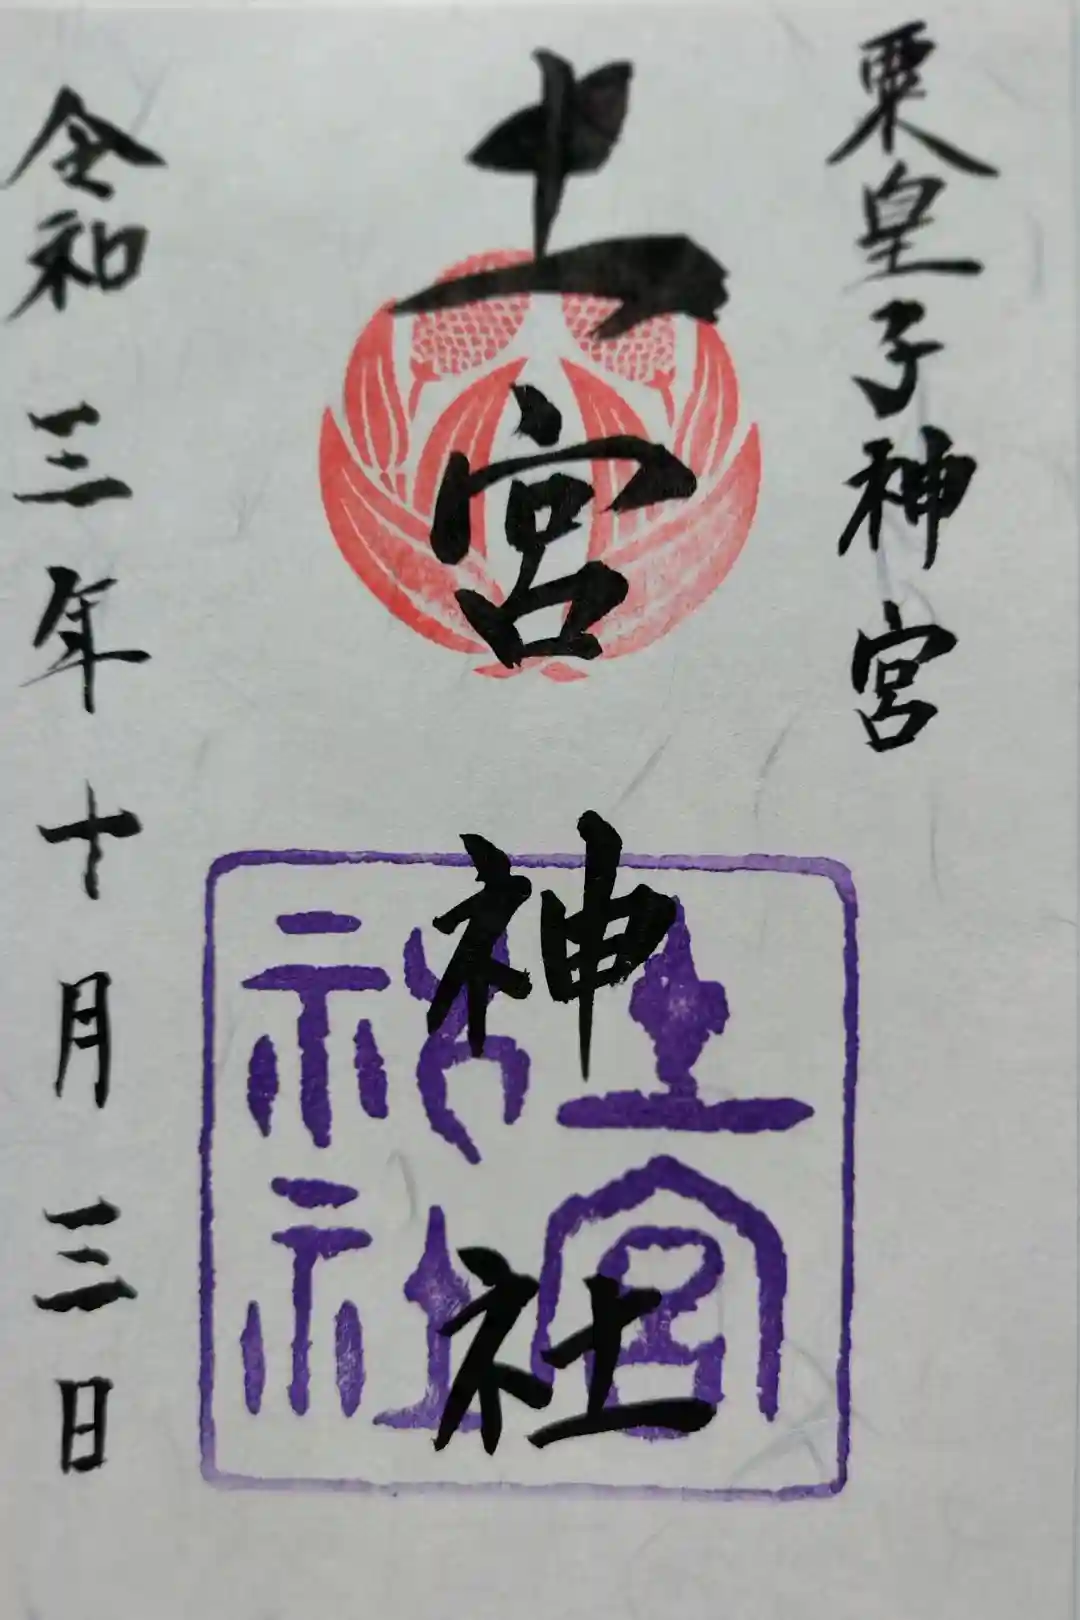 粟皇子神宮
土宮神社
令和三年十月三日
土宮
神社